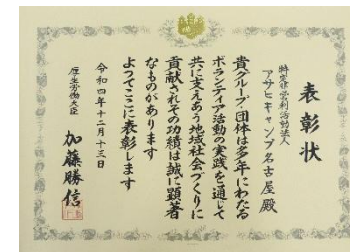 表彰状
特定非営利活動法人
アサヒキャンプ名古屋殿
貴グループ・団体は多年にわたる
ボランティア活動の実践を通じて
共に支えあう地域社会づくりに
貢献されその功績は誠に顕著
なものがあります
よってここに表彰します
令和四年十二月十三日
厚生労働大臣
加藤勝信